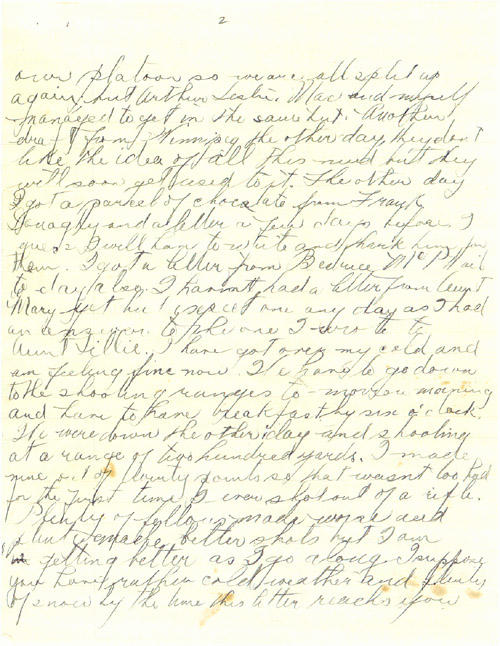 2
own platoon so we are all split up
again but Arthur Leslie Mac and myself
managed to get in the same hut. Another
draft from Winnipeg the other day, they don't
like the idea of all this mud but they
will soon get used to it. The other day
I got a parcel of chocolate from Frank
and a letter a few days before I
guess I will have to write and thank him for
them. I got a letter from Beatrice McPhail
to day also. I havnt had a letter from Aunt
Mary yet but I expect one any day as I had
an answer to the one I wrote to
Aunt Lillie. I have got over my cold and
am feeling fine now. We have to go down
to the shooting ranges to-morrow morning
and have to have breakfast by six o'clock.
We were down the other day and shooting
at a range of two hundred yards. I made
nine out of twenty points so that wasn't too bad
for the first time I ever shot out of a rifle.
Plenty of fellows made worse and
plenty made better shots but I am
getting better as I go along. I suppose
you have rather cold weather and plenty
of snow by the time this letter reaches you